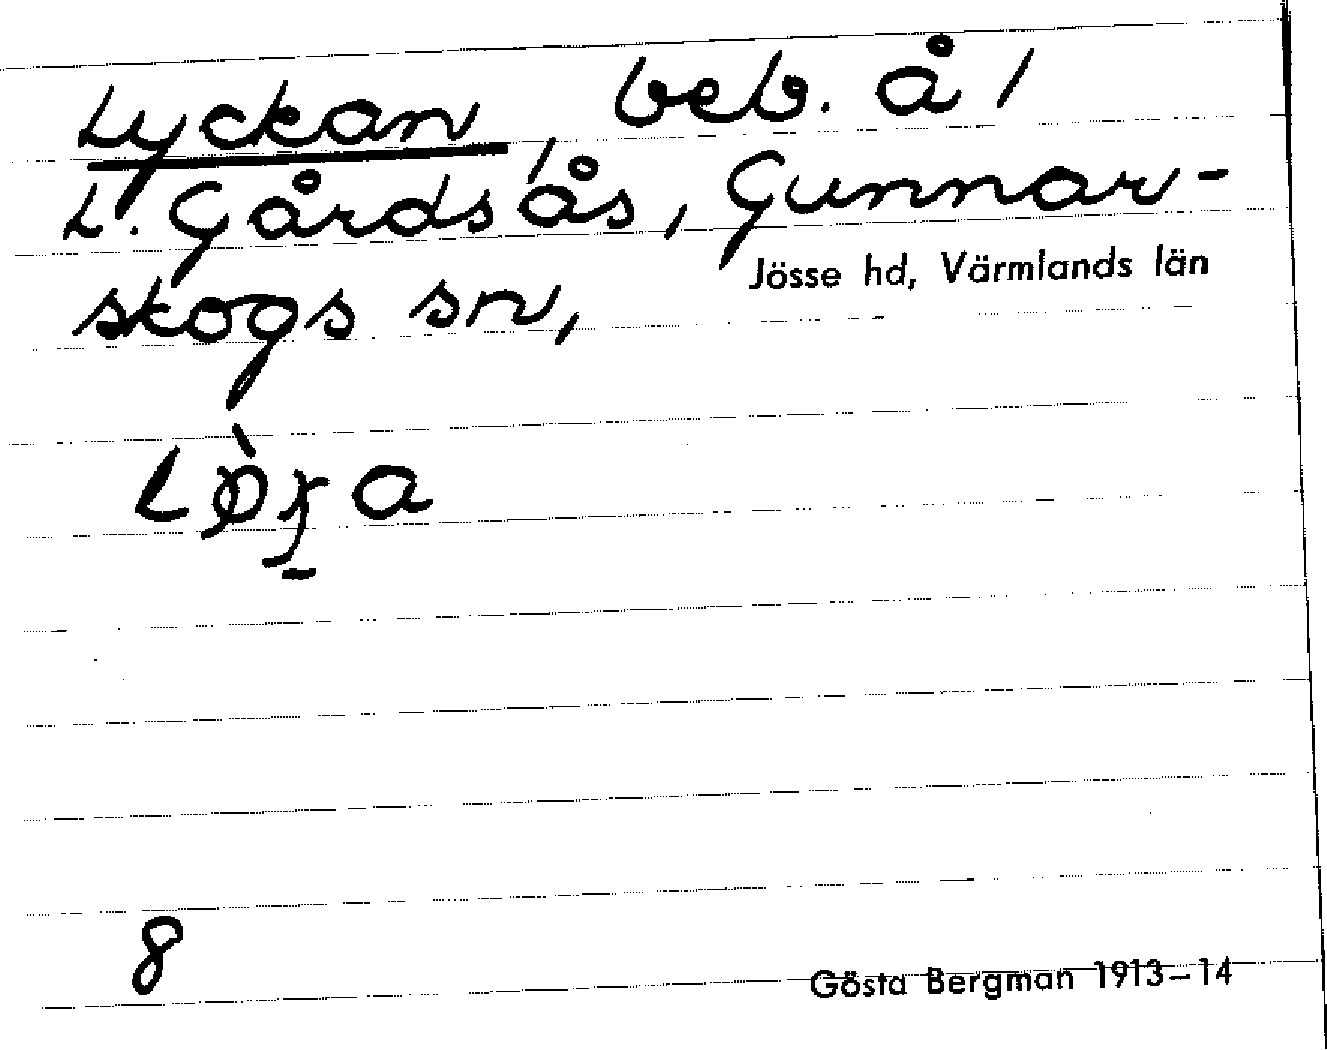 Lyckan, beb. å 1
L. Gårdsås, Gunnar-
skogs sn,
Jösse hd, Värmlands län
8
Gösta Bergman 1913–14